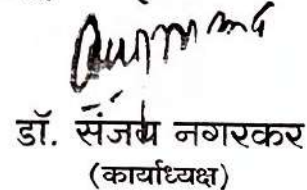 डॉ. संजय नगरकर
(कार्याध्यक्ष)